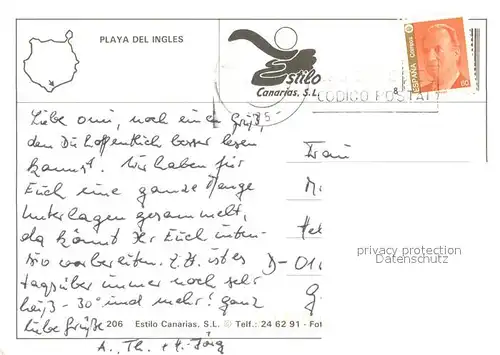 PLAYA DEL INGLES
Estilo
Canarias, S.L.
ESPAÑA
Correos
CODIGO POSTAL
Liebe Omi, noch ein Gruß,
den Du hoffentlich besser lesen
kannst. Wir haben für
Euch eine ganze Menge
Unterlagen gesammelt,
da könnt Ihr Euch inten-
siv vorbereiten. Z.Zt. ist es
tagsüber immer noch sehr
heiß - 30° und mehr! Ganz
liebe Grüße
A., Th. + H.-Jörg
Frau
D-01
privacy protection
Datenschutz
206 Estilo Canarias, S.L. ® Telf.: 24 62 91 - Fot